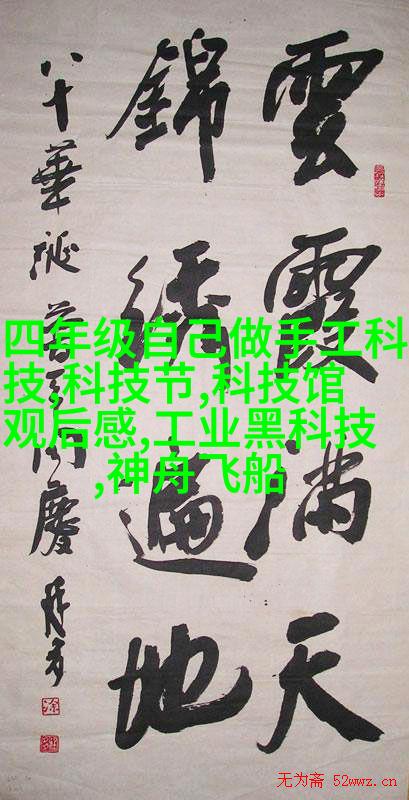 雲霞满天
錦綉遍地
八十華诞普天同慶
四年级自己做手工科
技,科技节,科技馆
观后感,工业黑科技
,神舟飞船
无为斋 52wwz.cn